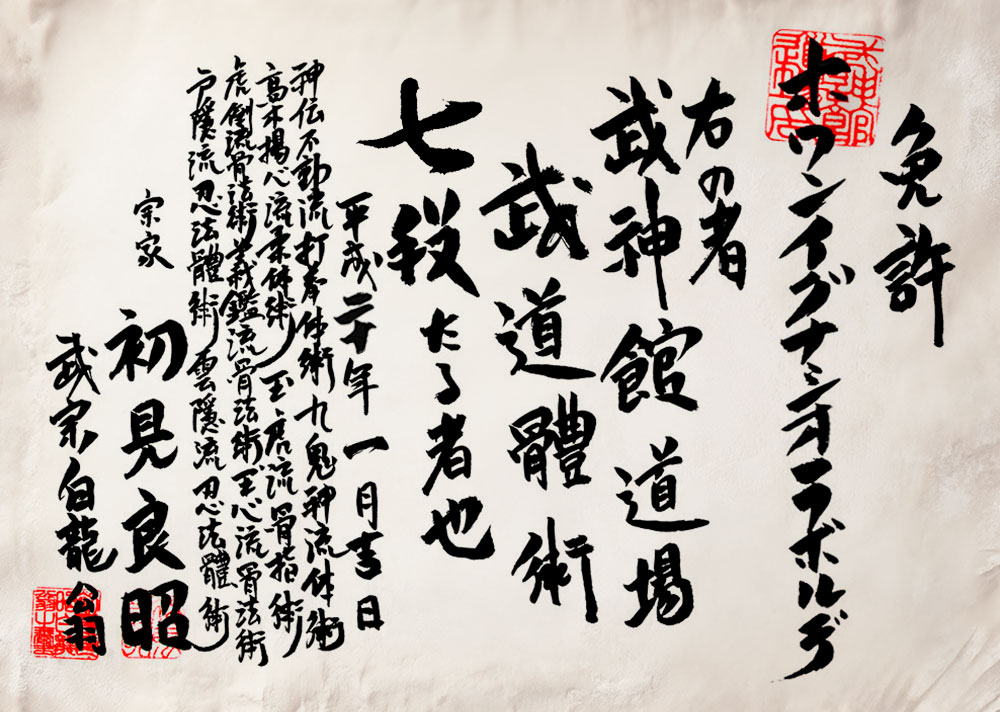 免許
ホワンイグナシオラボルデ
右の者
武神館道場
武道體術
七段たる者也
平成二十年一月吉日
神伝不動流打拳体術 九鬼神流体術
高木揚心流柔体術 玉虎流骨指術
虎倒流骨法術 義鑑流骨法術 玉心流骨法術
戸隠流忍法體術 雲隠流忍法體術
宗家 初見良昭
武宗白龍翁